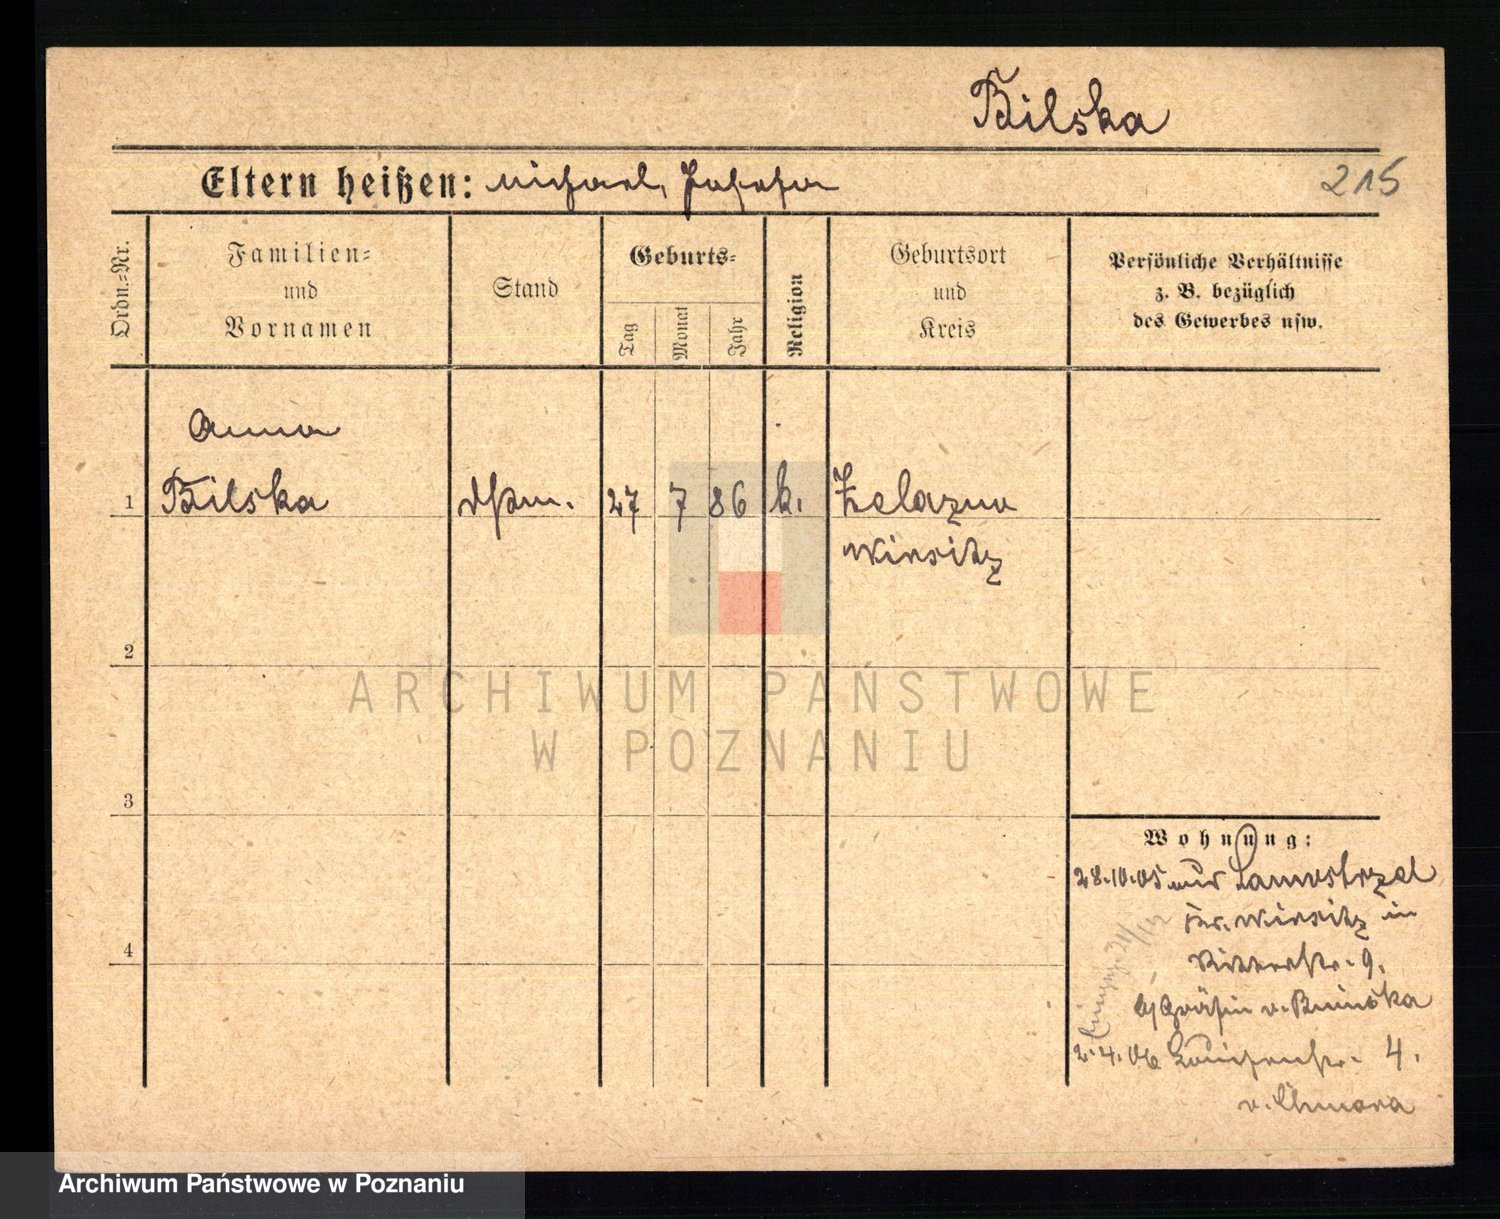 Bilska
Eltern heißen: Michael, Josefa
215
Ordn.=Nr.
Familien=
und
Vornamen
Stand
Geburts=
Tag
Monat
Jahr
Religion
Geburtsort
und
Kreis
Persönliche Verhältnisse
z. B. bezüglich
des Gewerbes usw.
Anna
1 Bilska 27 7 86 k. Zelazno
Wirsitz
2
ARCHIWUM PAŃSTWOWE
W POZNANIU
3
Wohnung:
28.10.05 aus Samostrzel
Kr. Wirsitz in
4
Ritterstr. 9.
b/ Gräfin v. Bninska
2.4.06 Louisenstr. 4.
v. Chmara
Archiwum Państwowe w Poznaniu